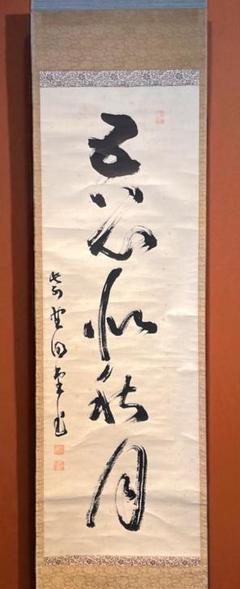 吾心似秋月
紫野